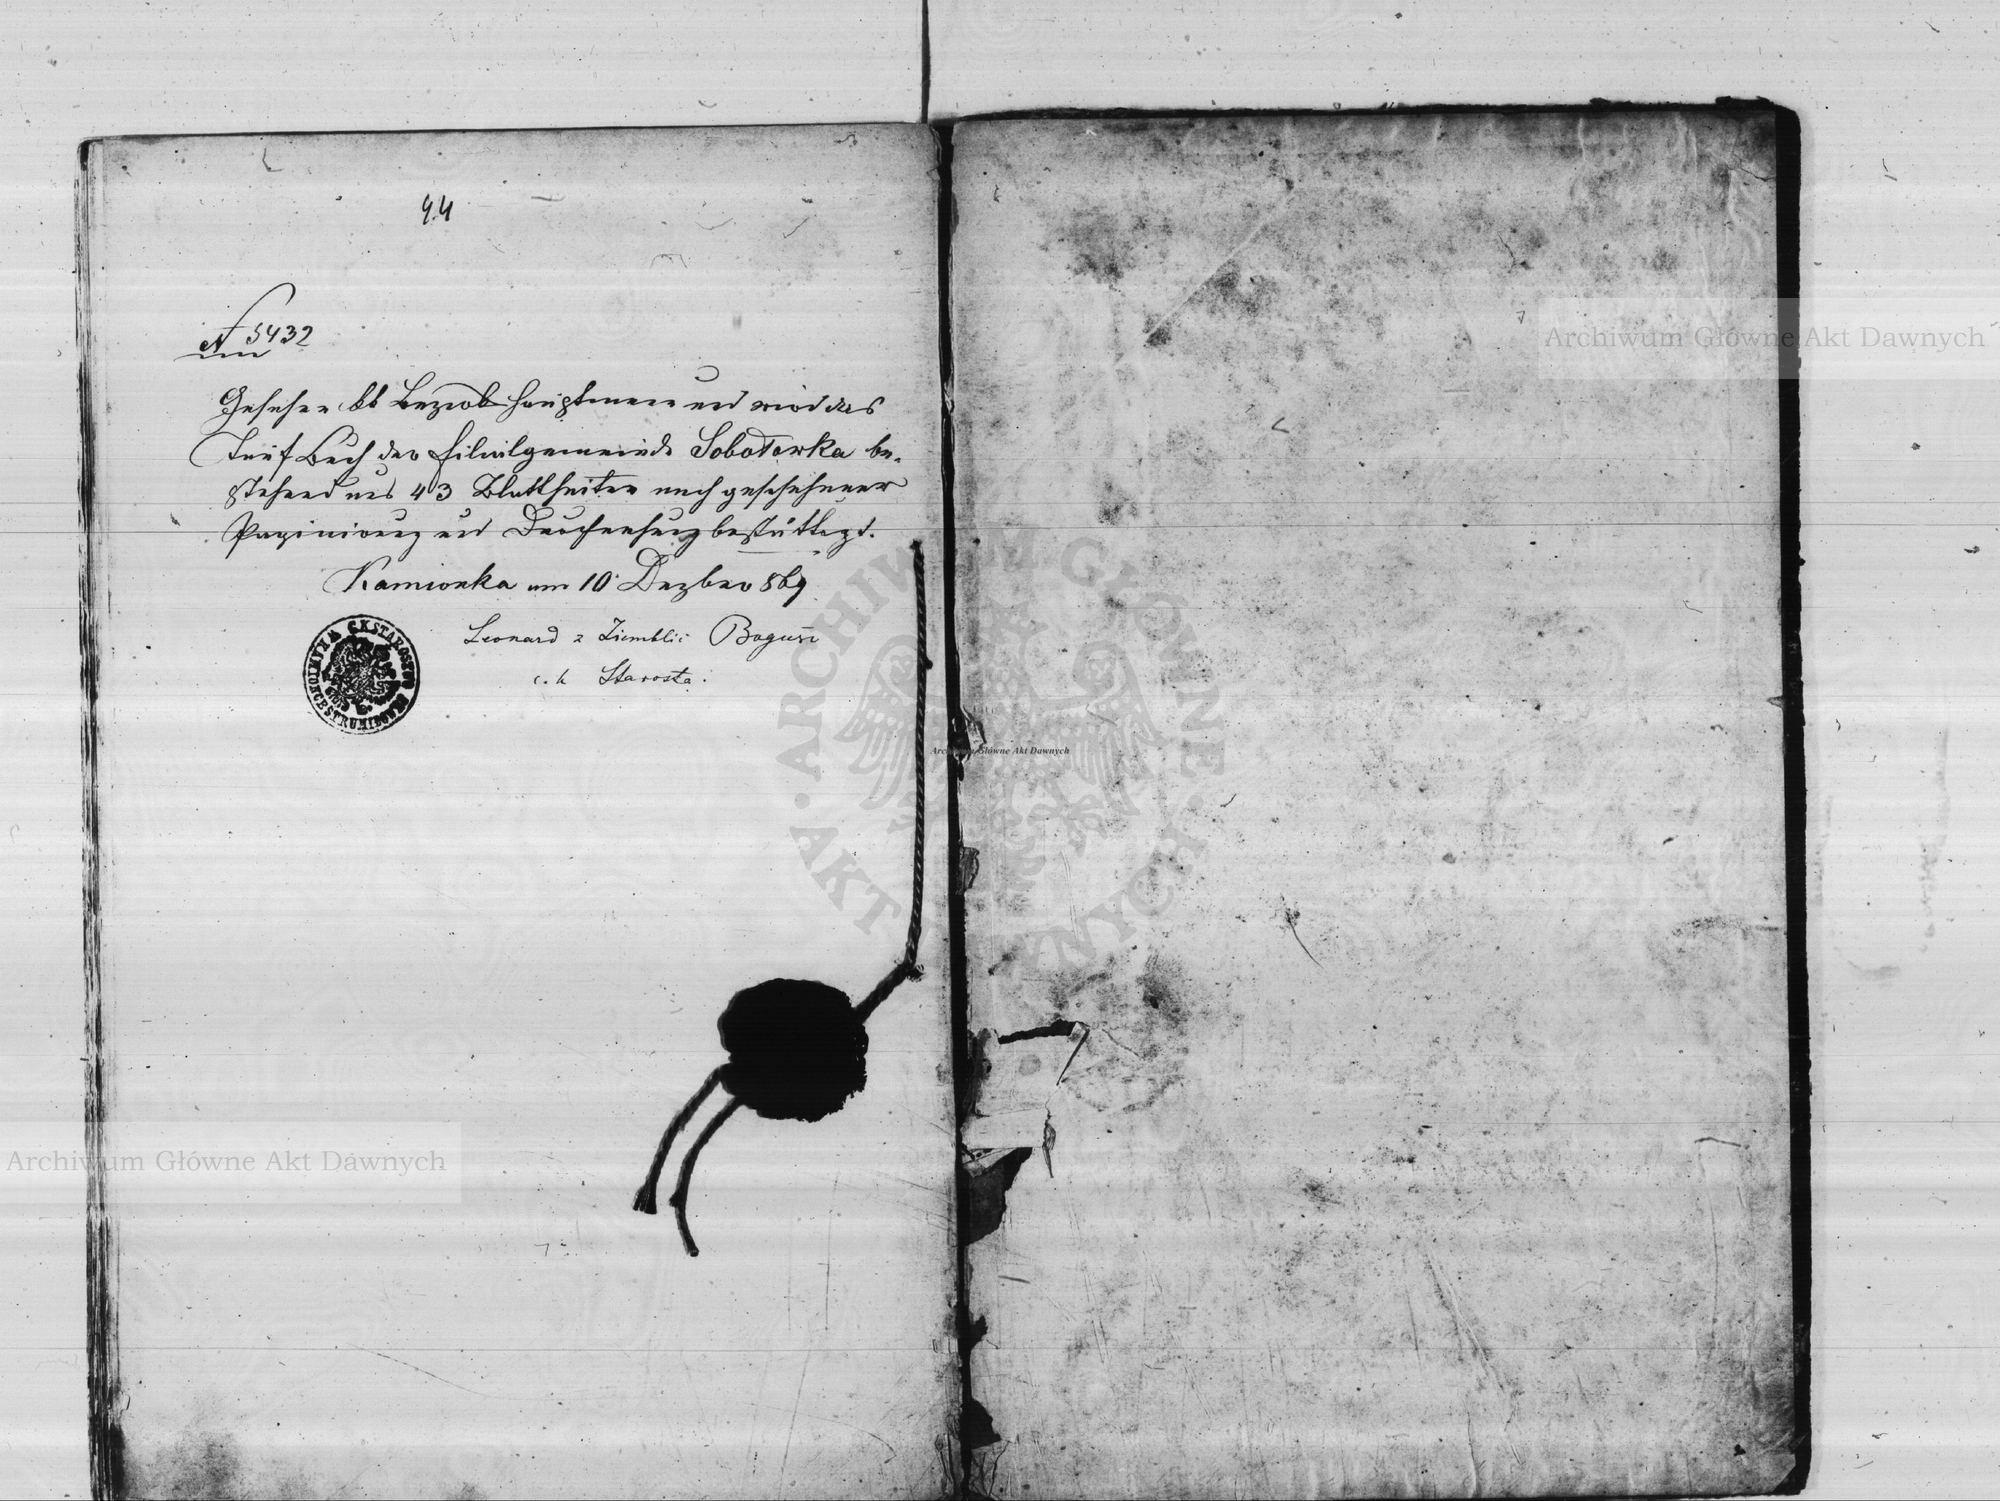 44
N 5432
Gesehen kk Bezirkshauptmann und wird das
Tauf Buch der Filialgemeinde Sobotowka be-
stehend aus 43 Blattseiten nach geschehener
Paginirung und bestättigt.
Kamionka am 10 Dezber 869
Leonard z Ziemblic Bogusz
c. k Starosta.
C K STAROSTWO
Archiwum Główne Akt Dawnych
ARCHIWUM GŁÓWNE AKT DAWNYCH
Archiwum Główne Akt Dawnych
Archiwum Główne Akt Dawnych